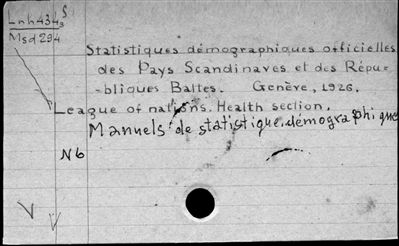 Lnh434₃ S
Msd294
Statistiques démographiques officielles
des Pays Scandinaves et des Répu-
-bliques Baltes. Genève, 1926.
League of nations. Health section.
Manuels de statistique démographique
N6